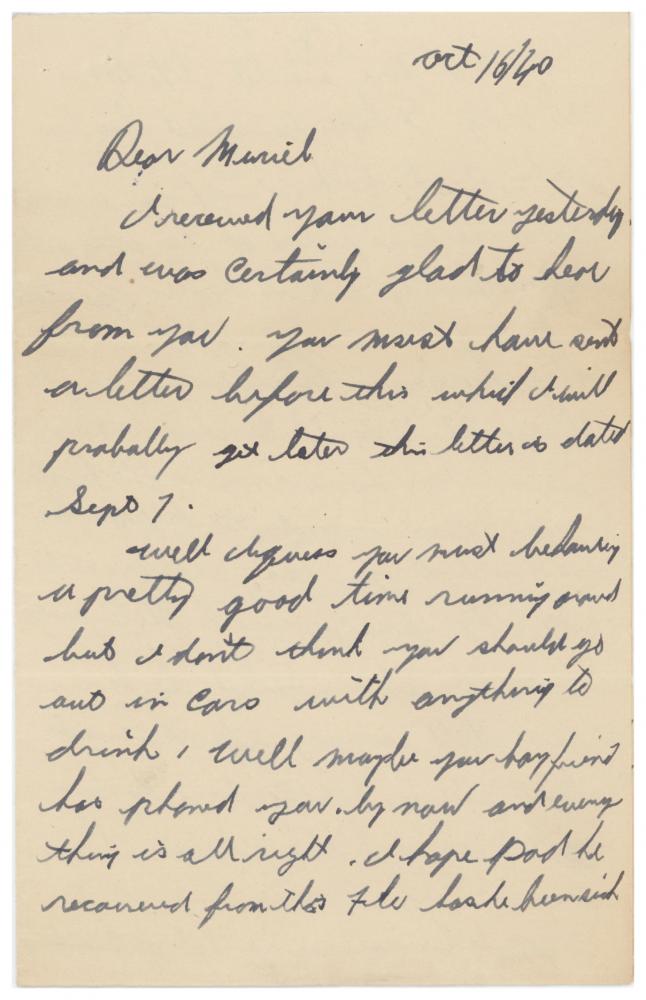 Oct 16/40
Dear Muriel
I received your letter yesterday.
and was certainly glad to hear
from you. you must have sent
a letter before this which I will
probably get later this letter is dated
Sept 7.
well I guess you must be having
a pretty good time running around
but I don't think you should go
out in cars with anything to
drink, well maybe your boy friend
has phoned you by now and every
thing is all right. I hope Dad he
recovered from this flu has he been sick